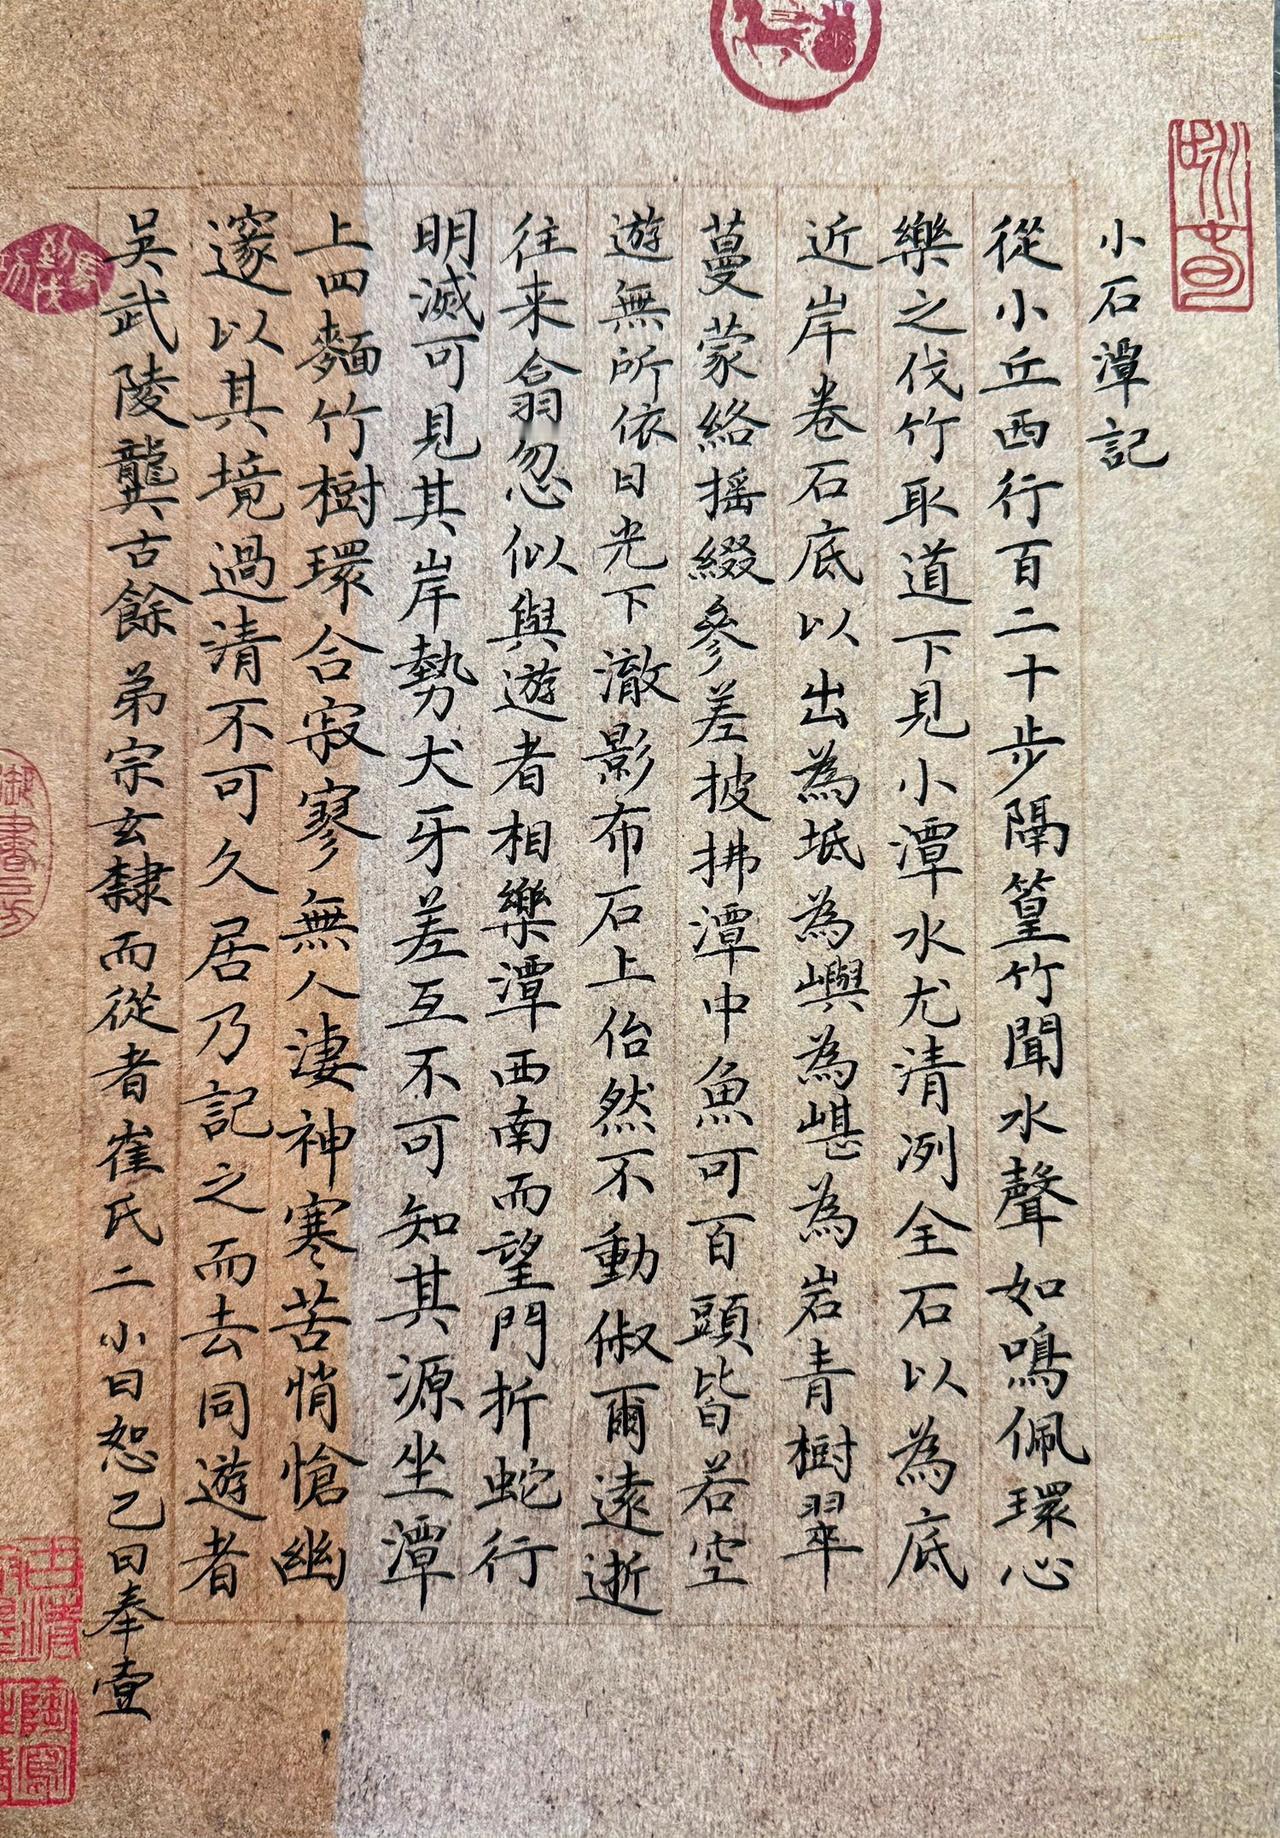 小石潭記
從小丘西行百二十步隔篁竹聞水聲如鳴佩環心
樂之伐竹取道下見小潭水尤清冽全石以為底
近岸卷石底以出為坻為嶼為嵁為岩青樹翠
蔓蒙絡搖綴參差披拂潭中魚可百頭皆若空
遊無所依日光下澈影布石上佁然不動俶爾遠逝
往来翕忽似與遊者相樂潭西南而望門折蛇行
明滅可見其岸勢犬牙差互不可知其源坐潭
上四麵竹樹環合寂寥無人淒神寒苦悄愴幽
邃以其境過清不可久居乃記之而去同遊者
吳武陵龔古餘弟宗玄隸而從者崔氏二小曰恕己曰奉壹